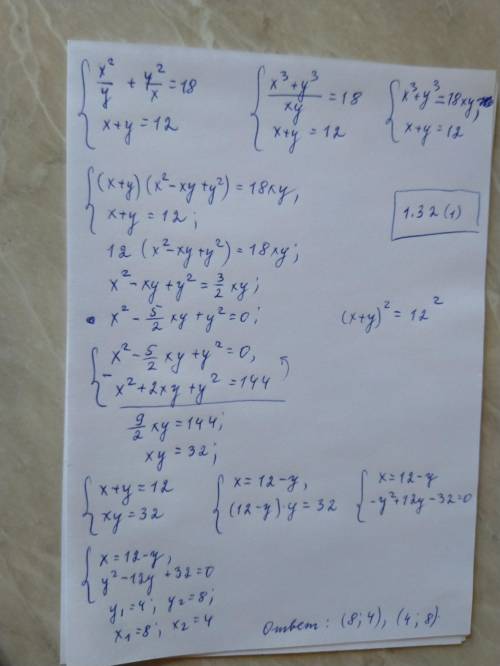 { x²/y + y²/x = 18   { (x³+y³)/xy = 18   { x³+y³=18xy,
x+y=12   x+y=12   x+y=12
{ (x+y)(x²-xy+y²)=18xy,
x+y=12;   1.32(1)
12(x²-xy+y²)=18xy;
x²-xy+y²=3/2xy;
x²-5/2xy+y²=0;   (x+y)²=12²
{ x²-5/2xy+y²=0,
- x²+2xy+y²=144
9/2xy=144;
xy=32;
{ x+y=12   { x=12-y,   { x=12-y
xy=32   (12-y)·y=32   -y²+12y-32=0
{ x=12-y,
y²-12y+32=0
y₁=4; y₂=8;
x₁=8; x₂=4   Ответ: (8;4), (4;8)